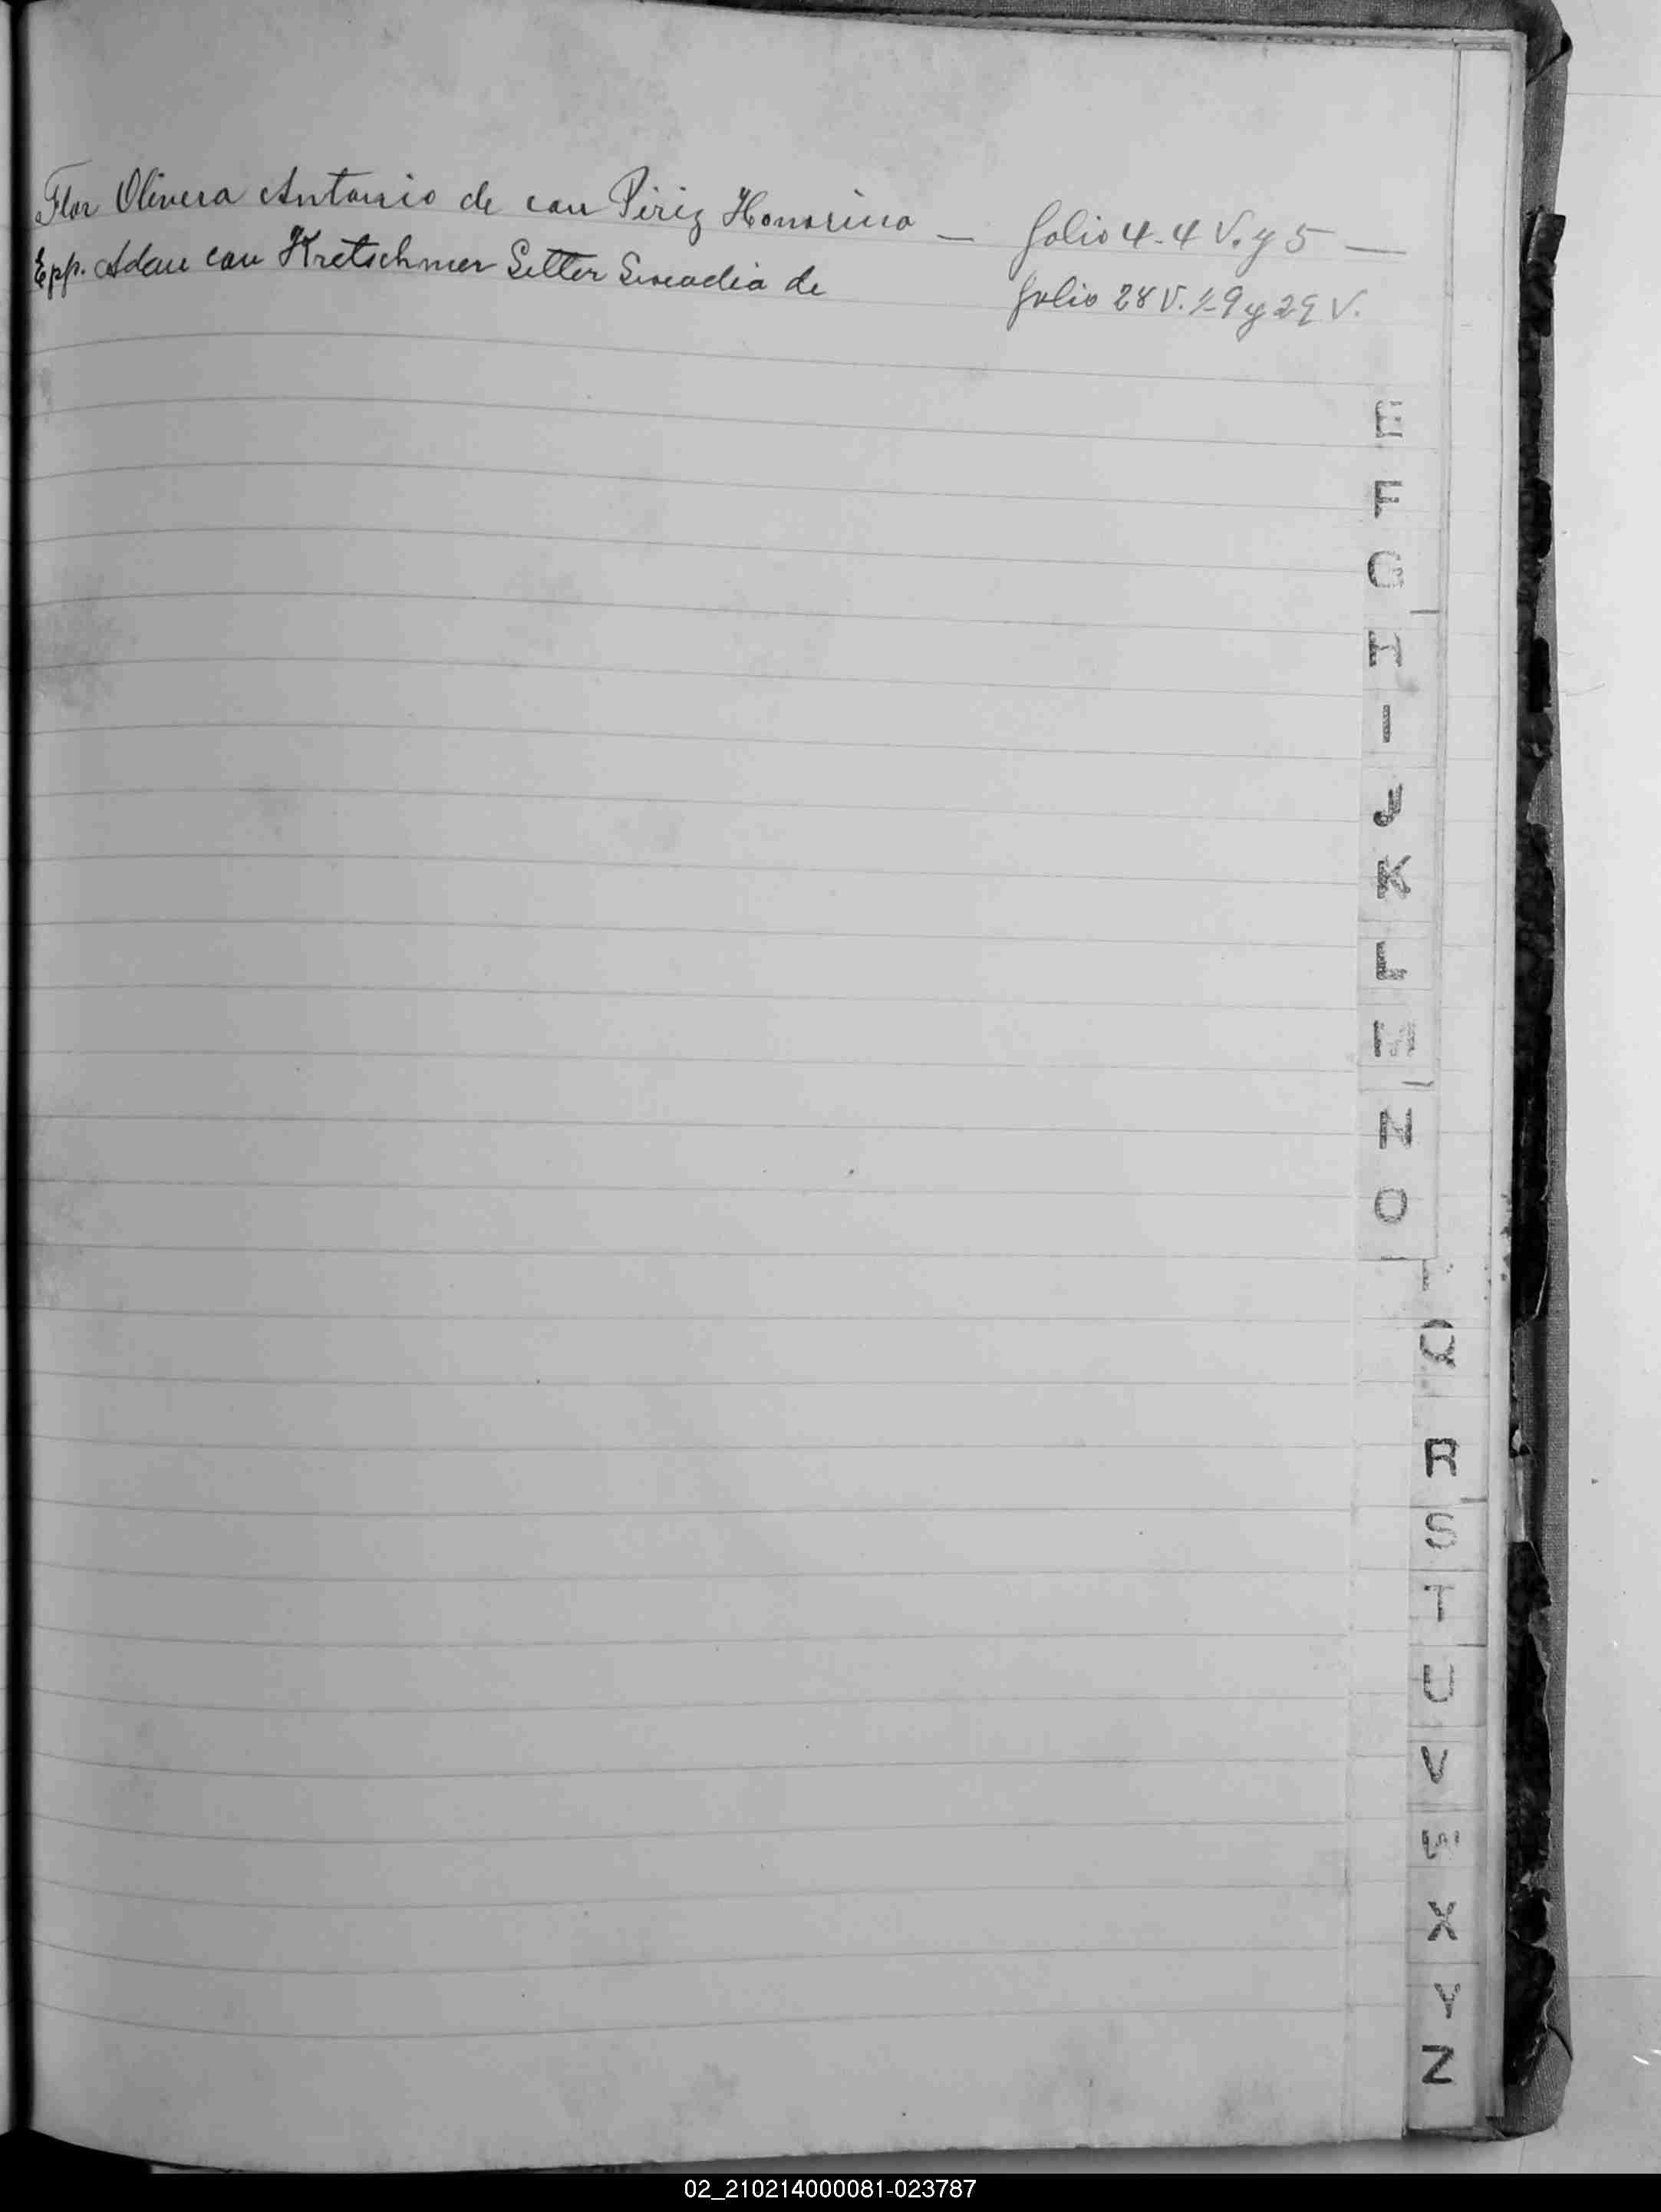 Flor Olivera Antonio de con Piriz Honorina — folio 4-4 V. y 5 —
Epp. Adan con Kretschmer Setter de folio 28 V. 29 y 29 V.
E
F
G
H
I
J
K
L
M
N
O
Q
R
S
T
U
V
W
X
Y
Z
02_210214000081-023787